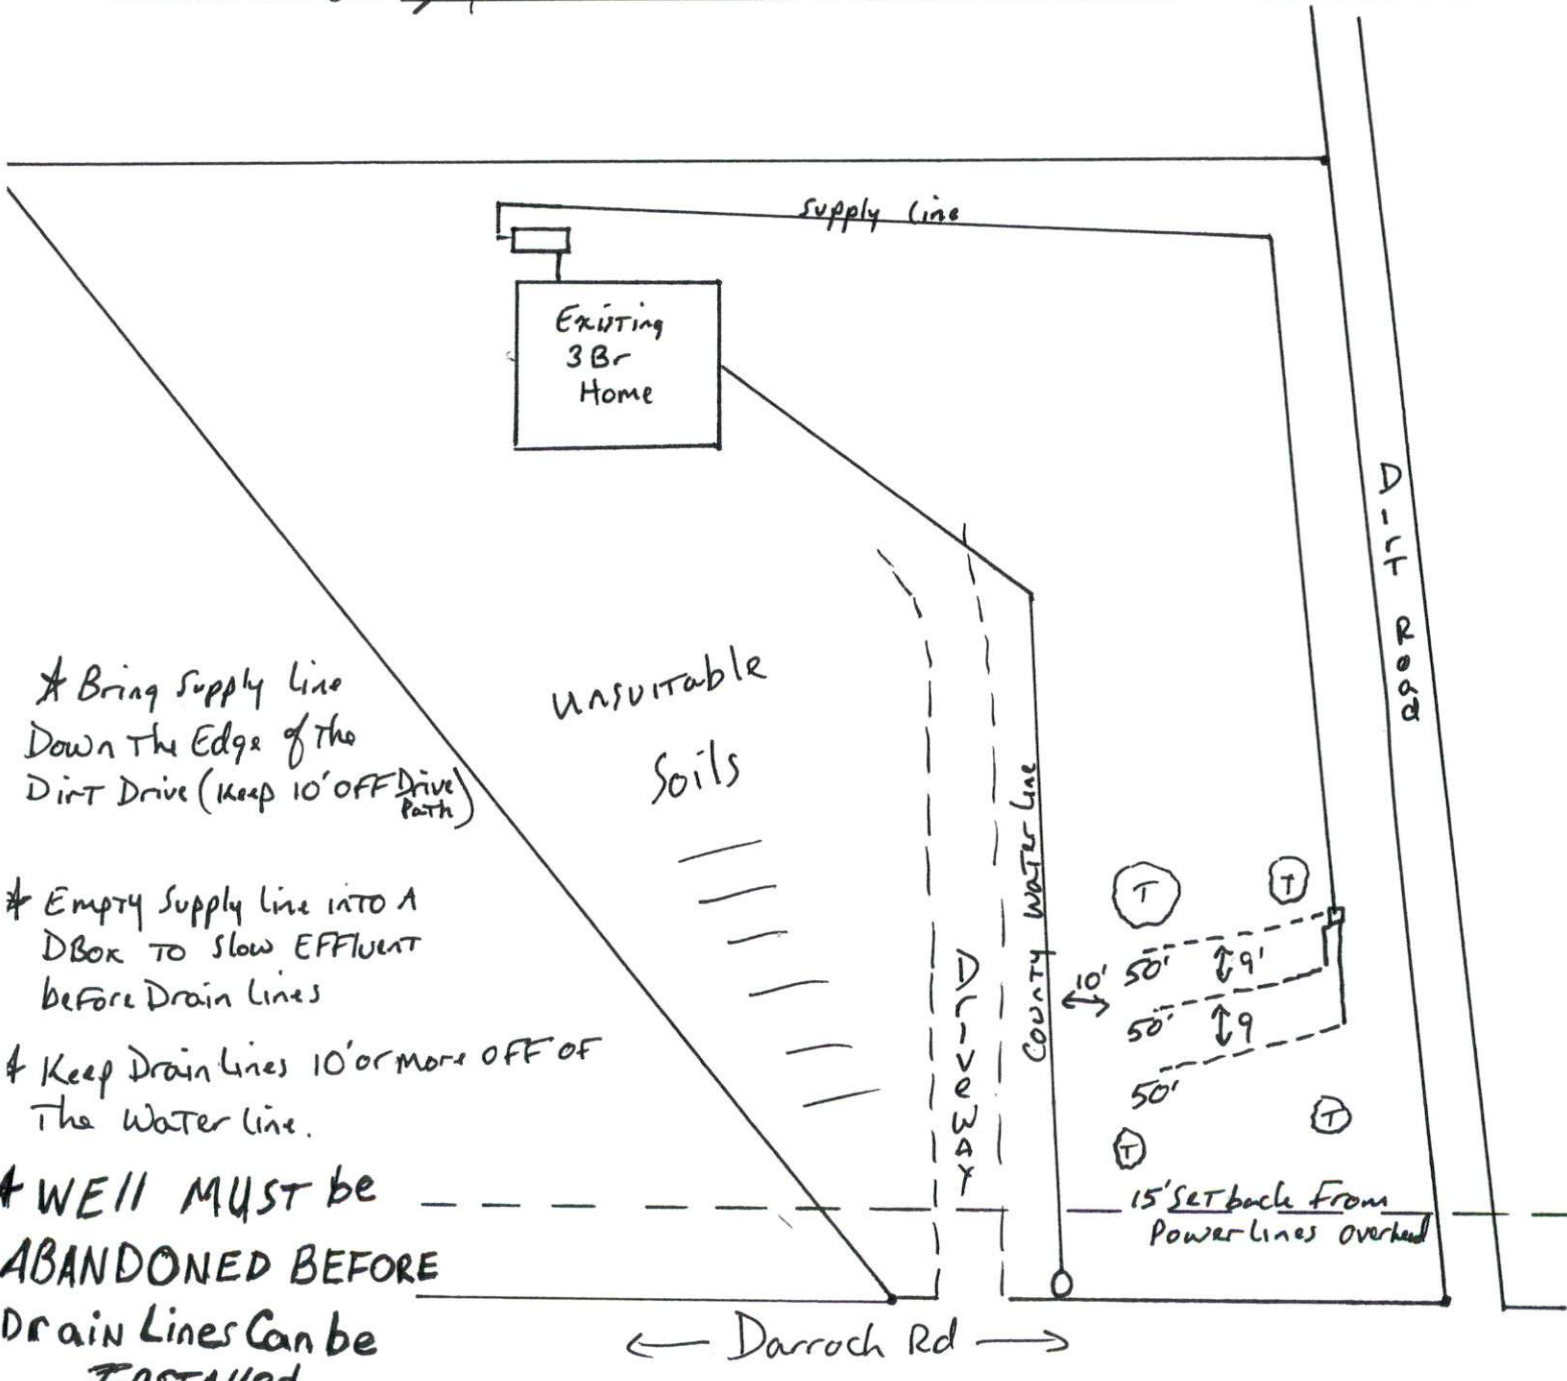 Supply Line
Existing
3 Br
Home
Dirt Road
Unsuitable
Soils
* Bring Supply Line
Down The Edge of The
Dirt Drive (Keep 10' OFF Drive
Path)
* Empty Supply Line into A
DBox To Slow Effluent
before Drain Lines
* Keep Drain Lines 10' or more OFF OF
The Water Line.
* WEll MUST be
ABANDONED BEFORE
Drain Lines Can be
Installed
Driveway
County Water Line
T
T
10'
50'
9'
50'
9
50'
T
T
15' Setback From
Powerlines overhead
Darroch Rd